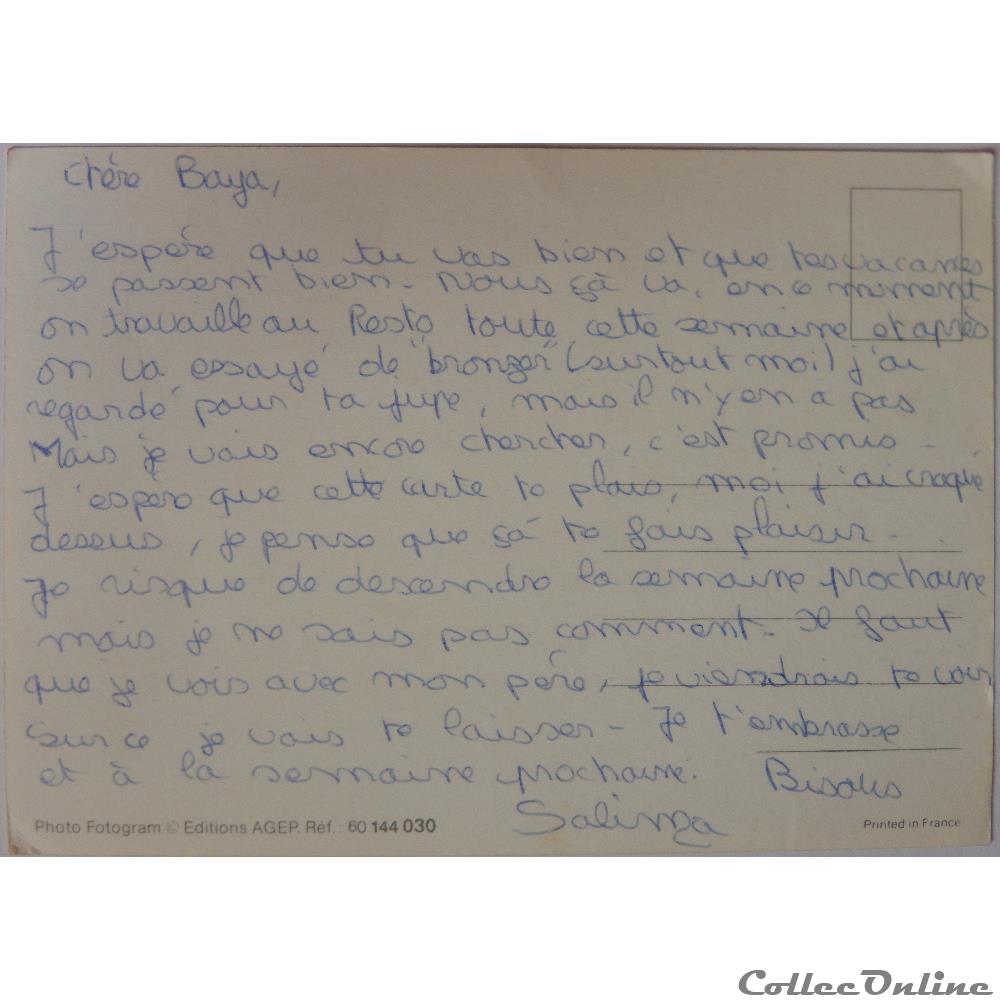 Chère Baya,
J'espère que tu vas bien et que tes vacances
se passent bien. Nous çà va, en ce moment
on travaille au Resto toute cette semaine et après
on va essayé de "bronzer" (surtout moi) j'ai
regardé pour ta jupe, mais il n'y en a pas
Mais je vais encore chercher, c'est promis -
J'espère que cette carte te plais, moi j'ai craqué
dessus, je pense que çà te fais plaisir - . .
Je risque de descendre la semaine prochaine
mais je ne sais pas comment. Il faut
que je vois avec mon père, je viendrais te voir
sur ce je vais te laisser - Je t'embrasse
et à la semaine prochaine. Bisous
Salima
Photo Fotogram © Editions AGEP. Réf.: 60 144 030
Printed in France
CollecOnline